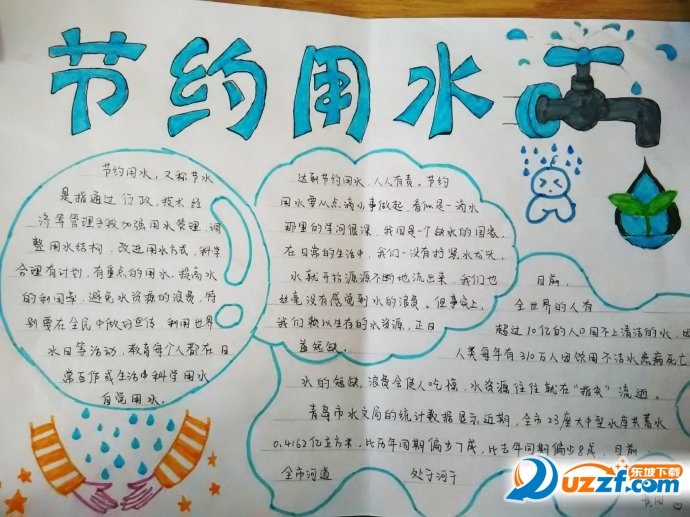 节约用水
节约用水，又称节水
是指通过行政，技术经
济等管理手段加强用水管理，调
整用水结构，改进用水方式，科学
合理有计划，有重点的用水，提高水
的利用率，避免水资源的浪费，特
别要在全民中做好宣传 利用世界
水日等活动，教育每个人都在日
常工作或生活中科学用水
自觉用水。
达到节约用水，人人有责。节约
用水要从点滴小事做起，看似是一滴水
那里的学问很深，我国是一个缺水的国家
在日常的生活中，我们一没有拧紧水龙头，
水就开始源源不断地流出来，我们也
丝毫没有感觉到水的浪费。但事实上，
我们赖以生存的水资源，正日
益短缺。
目前，
全世界的人有
超过10亿的人口用不上清洁的水，
人类每年有310万人因饮用不洁水患病死亡
水的短缺，浪费会使人吃惊，水资源往往就在“指尖”流逝。
青岛市水文局的统计数据显示近期，全市23座大中型水库共蓄水
0.4162亿立方米，比历年同期偏少7成，比去年同期偏少8成，目前，
全市河道 处于河干
东坡下载
uzzf.com